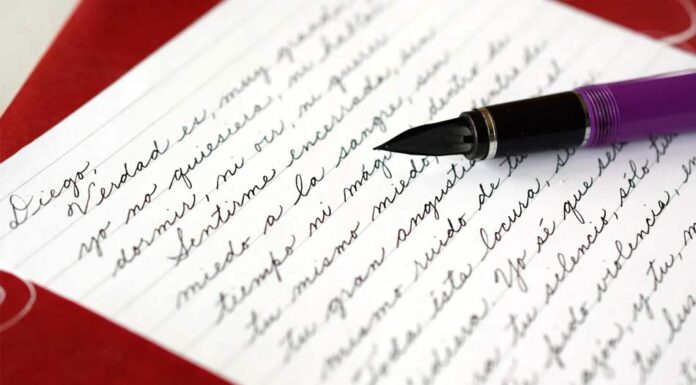 Diego,
Verdad es, muy grande,
yo no quiesiera, ni hablar
dormir, ni oir, ni querer
Sentirme encerrada, sin
miedo a la sangre, sin
tiempo ni dentro de
tu mismo miedo, de
tu gran el
mismo ruido de tu
Toda ésta locura,
Yo sé que
tu silencio, sólo tu
pido violencia,
y tu,
tu